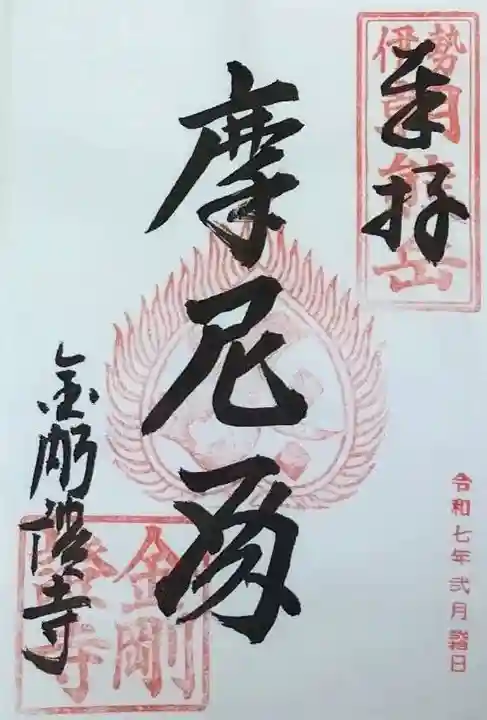 奉拝
伊勢
朝熊岳
摩尼殿
金剛證寺
金剛
證寺
令和七年弐月